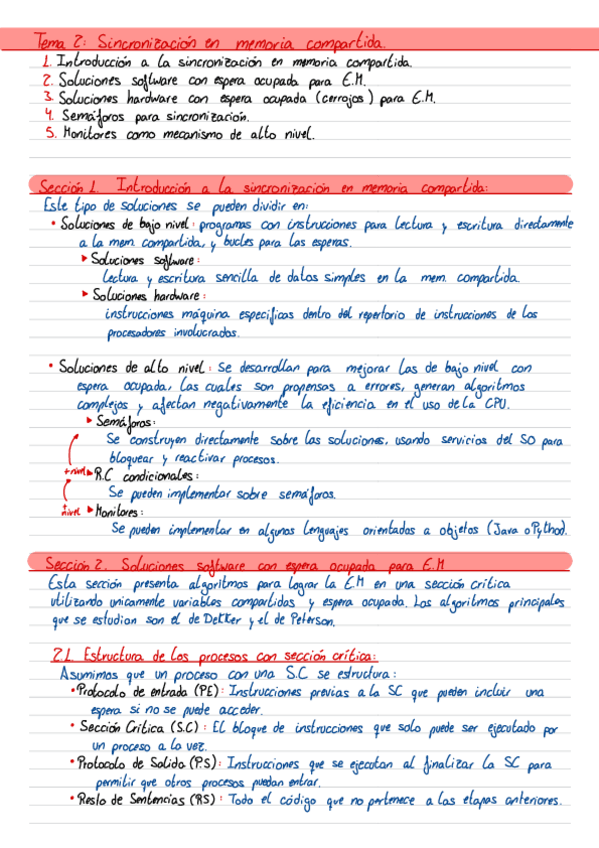 Tema 2: Sincronización en memoria compartida.
1. Introducción a la sincronización en memoria compartida.
2. Soluciones software con espera ocupada para E.M.
3. Soluciones hardware con espera ocupada (cerrojos) para E.M.
4. Semáforos para sincronización.
5. Monitores como mecanismo de alto nivel.
Sección 1. Introducción a la sincronización en memoria compartida:
Este tipo de soluciones se pueden dividir en:
• Soluciones de bajo nivel: programas con instrucciones para lectura y escritura directamente
a la mem. compartida, y bucles para las esperas.
▸ Soluciones software:
lectura y escritura sencilla de datos simples en la mem. compartida.
▸ Soluciones hardware:
instrucciones máquina específicas dentro del repertorio de instrucciones de los
procesadores involucrados.
• Soluciones de alto nivel: Se desarrollan para mejorar las de bajo nivel con
espera ocupada, las cuales son propensas a errores, generan algoritmos
complejos y afectan negativamente la eficiencia en el uso de la CPU.
▸ Semáforos:
Se construyen directamente sobre las soluciones, usando servicios del SO para
bloquear y reactivar procesos.
+nivel ▸ R.C condicionales:
Se pueden implementar sobre semáforos.
+nivel ▸ Monitores:
Se pueden implementar en algunos lenguajes orientados a objetos (Java o Python).
Sección 2. Soluciones software con espera ocupada para E.M
Esta sección presenta algoritmos para lograr la EM en una sección crítica
utilizando unicamente variables compartidas y espera ocupada. Los algoritmos principales
que se estudian son el de Dekker y el de Peterson.
2.1. Estructura de los procesos con sección crítica:
Asumimos que un proceso con una S.C se estructura:
• Protocolo de entrada (PE): Instrucciones previas a la SC que pueden incluir una
espera si no se puede acceder.
• Sección Crítica (S.C): El bloque de instrucciones que solo puede ser ejecutado por
un proceso a la vez.
• Protocolo de Salida (P.S): Instrucciones que se ejecutan al finalizar la SC para
permitir que otros procesos puedan entrar.
• Resto de Sentencias (RS): Todo el código que no pertenece a las etapas anteriores.